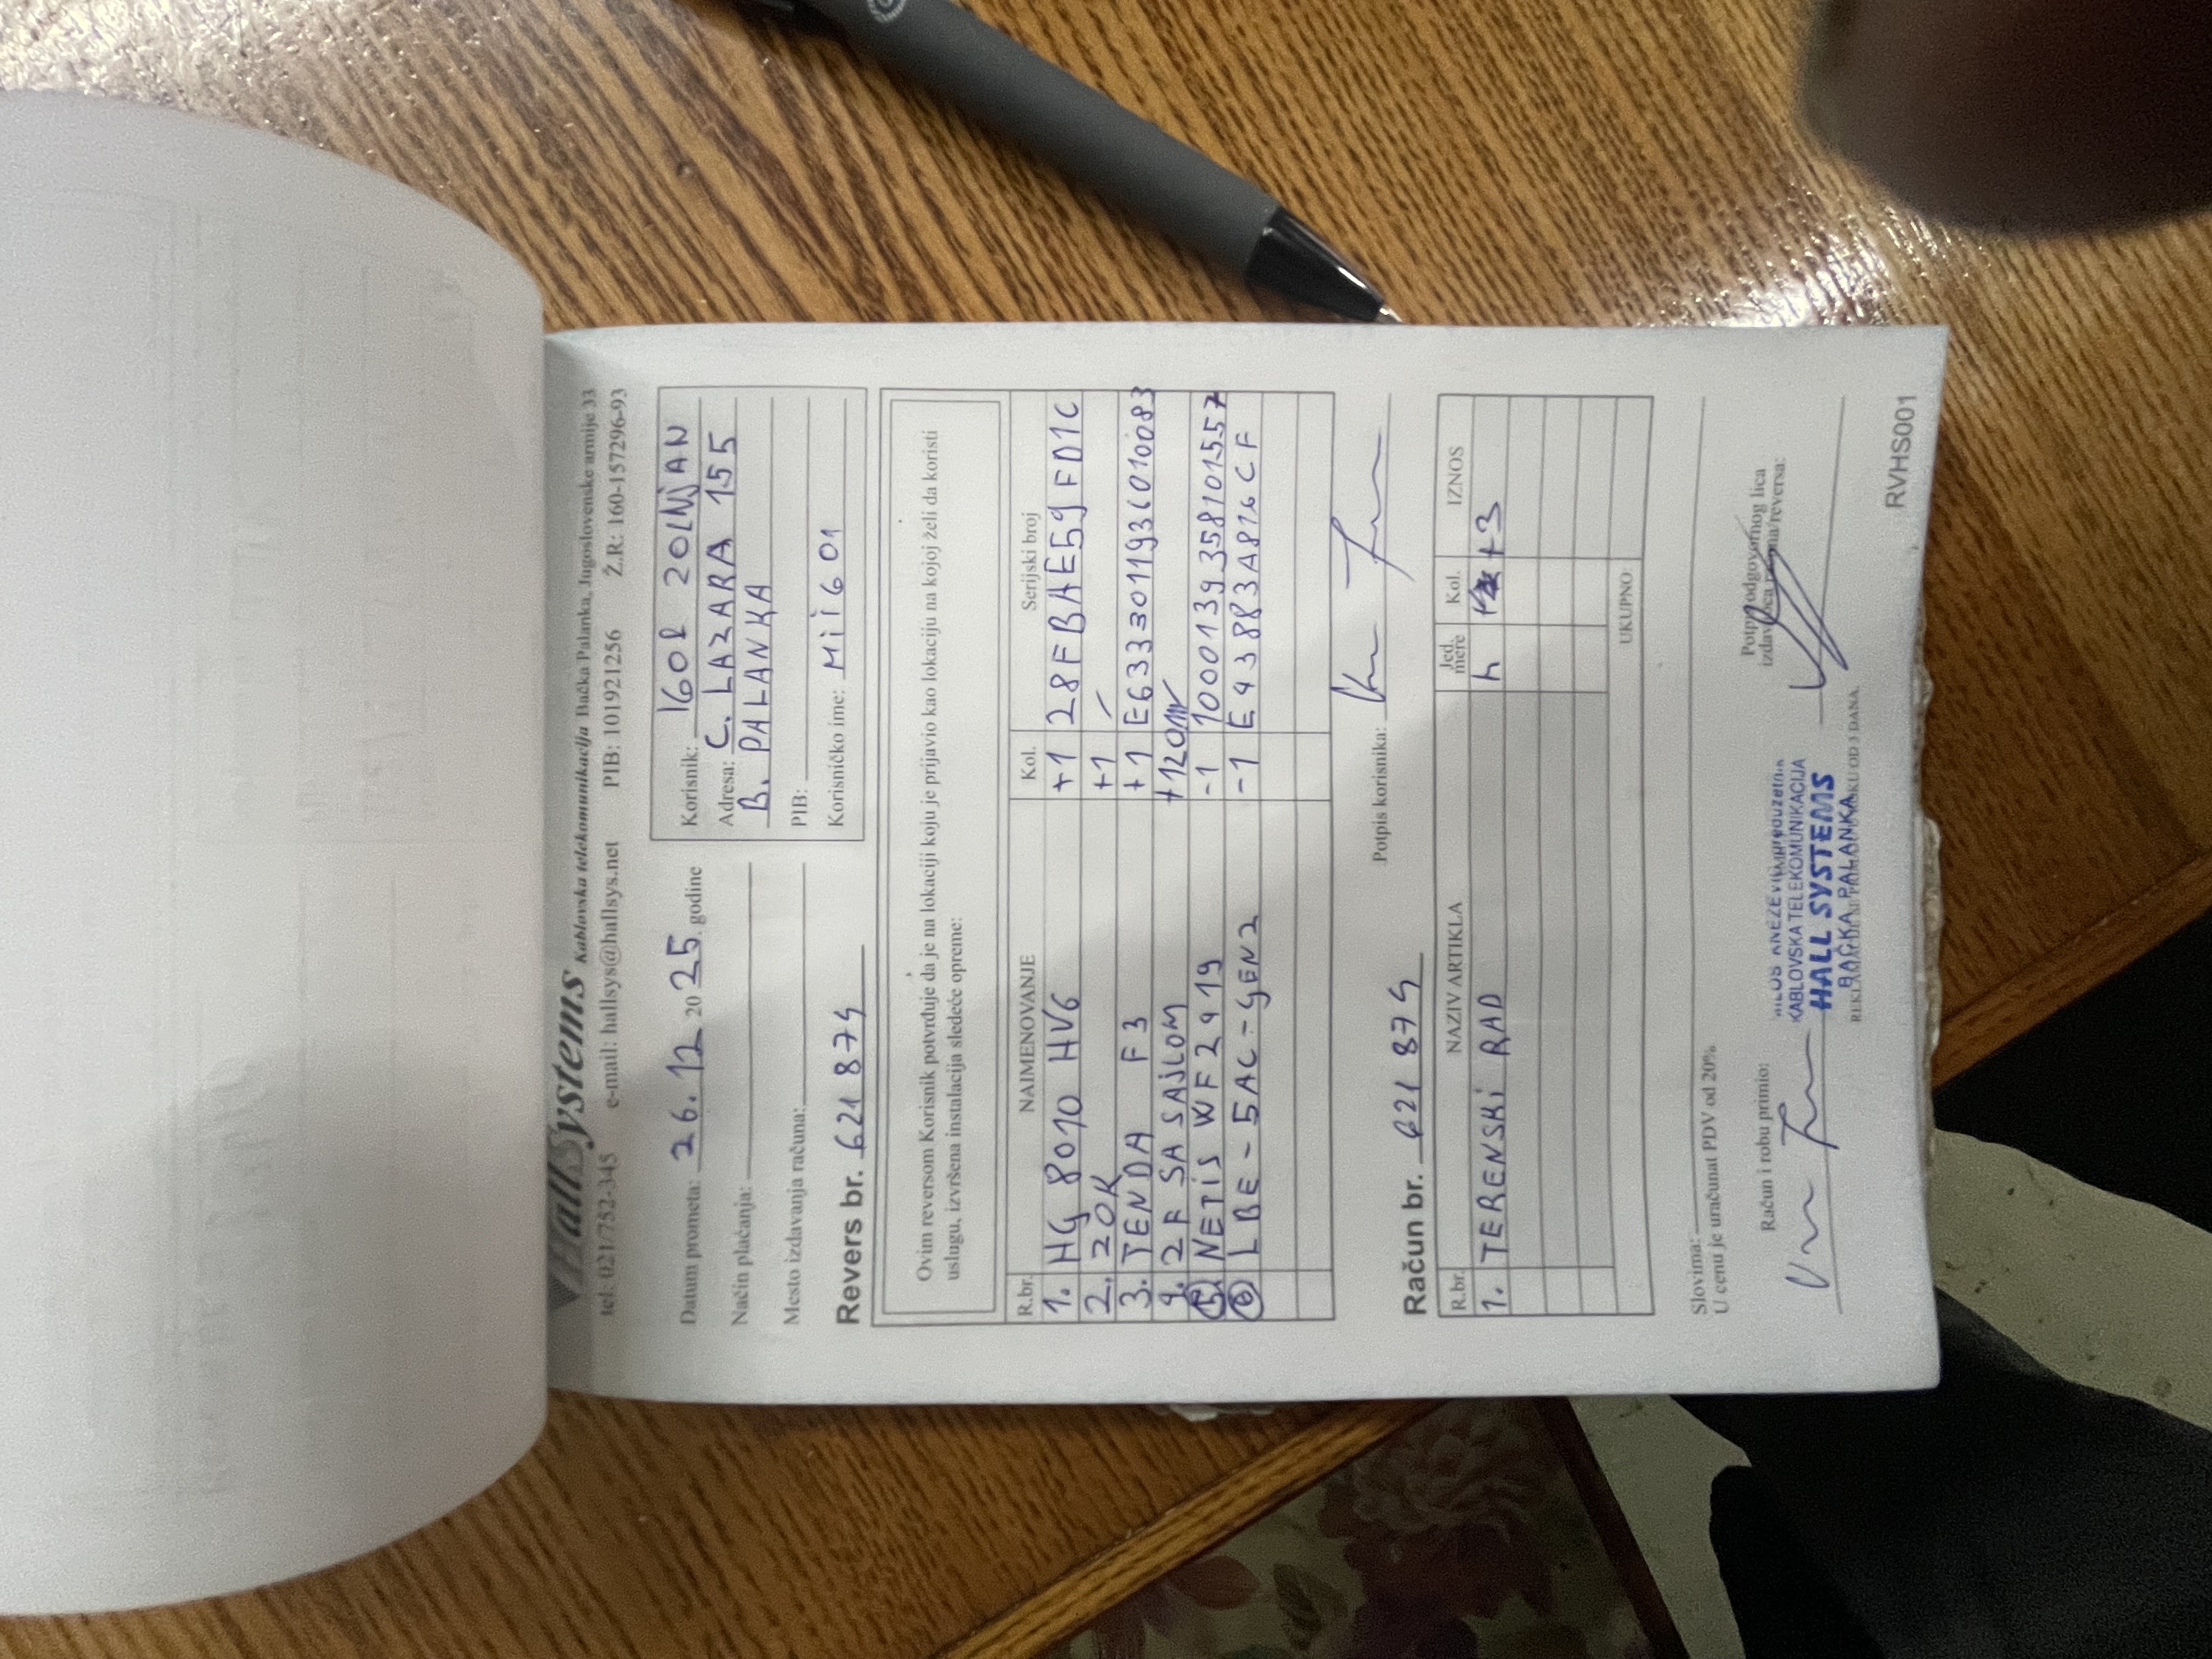 HallSystems Kablovska telekomunikacija Bačka Palanka, Jugoslovenske armije 33
tel. 021/752-345 e-mail: hallsys@hallsys.net PIB: 101921256 Ž.R: 160-157296-93
Datum prometa: 26.12 2025. godine
Način plaćanja:
Mesto izdavanja računa:
Revers br. 621 874
Korisnik: IGOR ZOLNJAN
Adresa: C. LAZARA 155
B. PALANKA
PIB:
Korisničko ime: MII601
Ovim reversom Korisnik potvrđuje da je na lokaciji koju je prijavio kao lokaciju na kojoj želi da koristi
uslugu, izvršena instalacija sledeće opreme:
R.br. NAIMENOVANJE Kol. Serijski broj
1. HG 8010 HV6 +1 28FBAE59FD1C
2. ZOK +1 /
3. TENDA F3 +1 E6333011936010083
4. 2F SA SAJLOM +120m
5. NETIS WF2419 -1 1000139358101557
6 LBE-5AC-GEN2 -1 E43883A876CF
Potpis korisnika:
Račun br. 621 874
R.br. NAZIV ARTIKLA Jed. mere Kol. IZNOS
1. TERENSKI RAD h +3
UKUPNO:
Slovima:
U cenu je uračunat PDV od 20%
Račun i robu primio:
Potpis odgovornog lica
izdavaoca računa/reversa:
KABLOVSKA TELEKOMUNIKACIJA
HALL SYSTEMS
BAČKA PALANKA
OD 3 DANA.
RVHS001